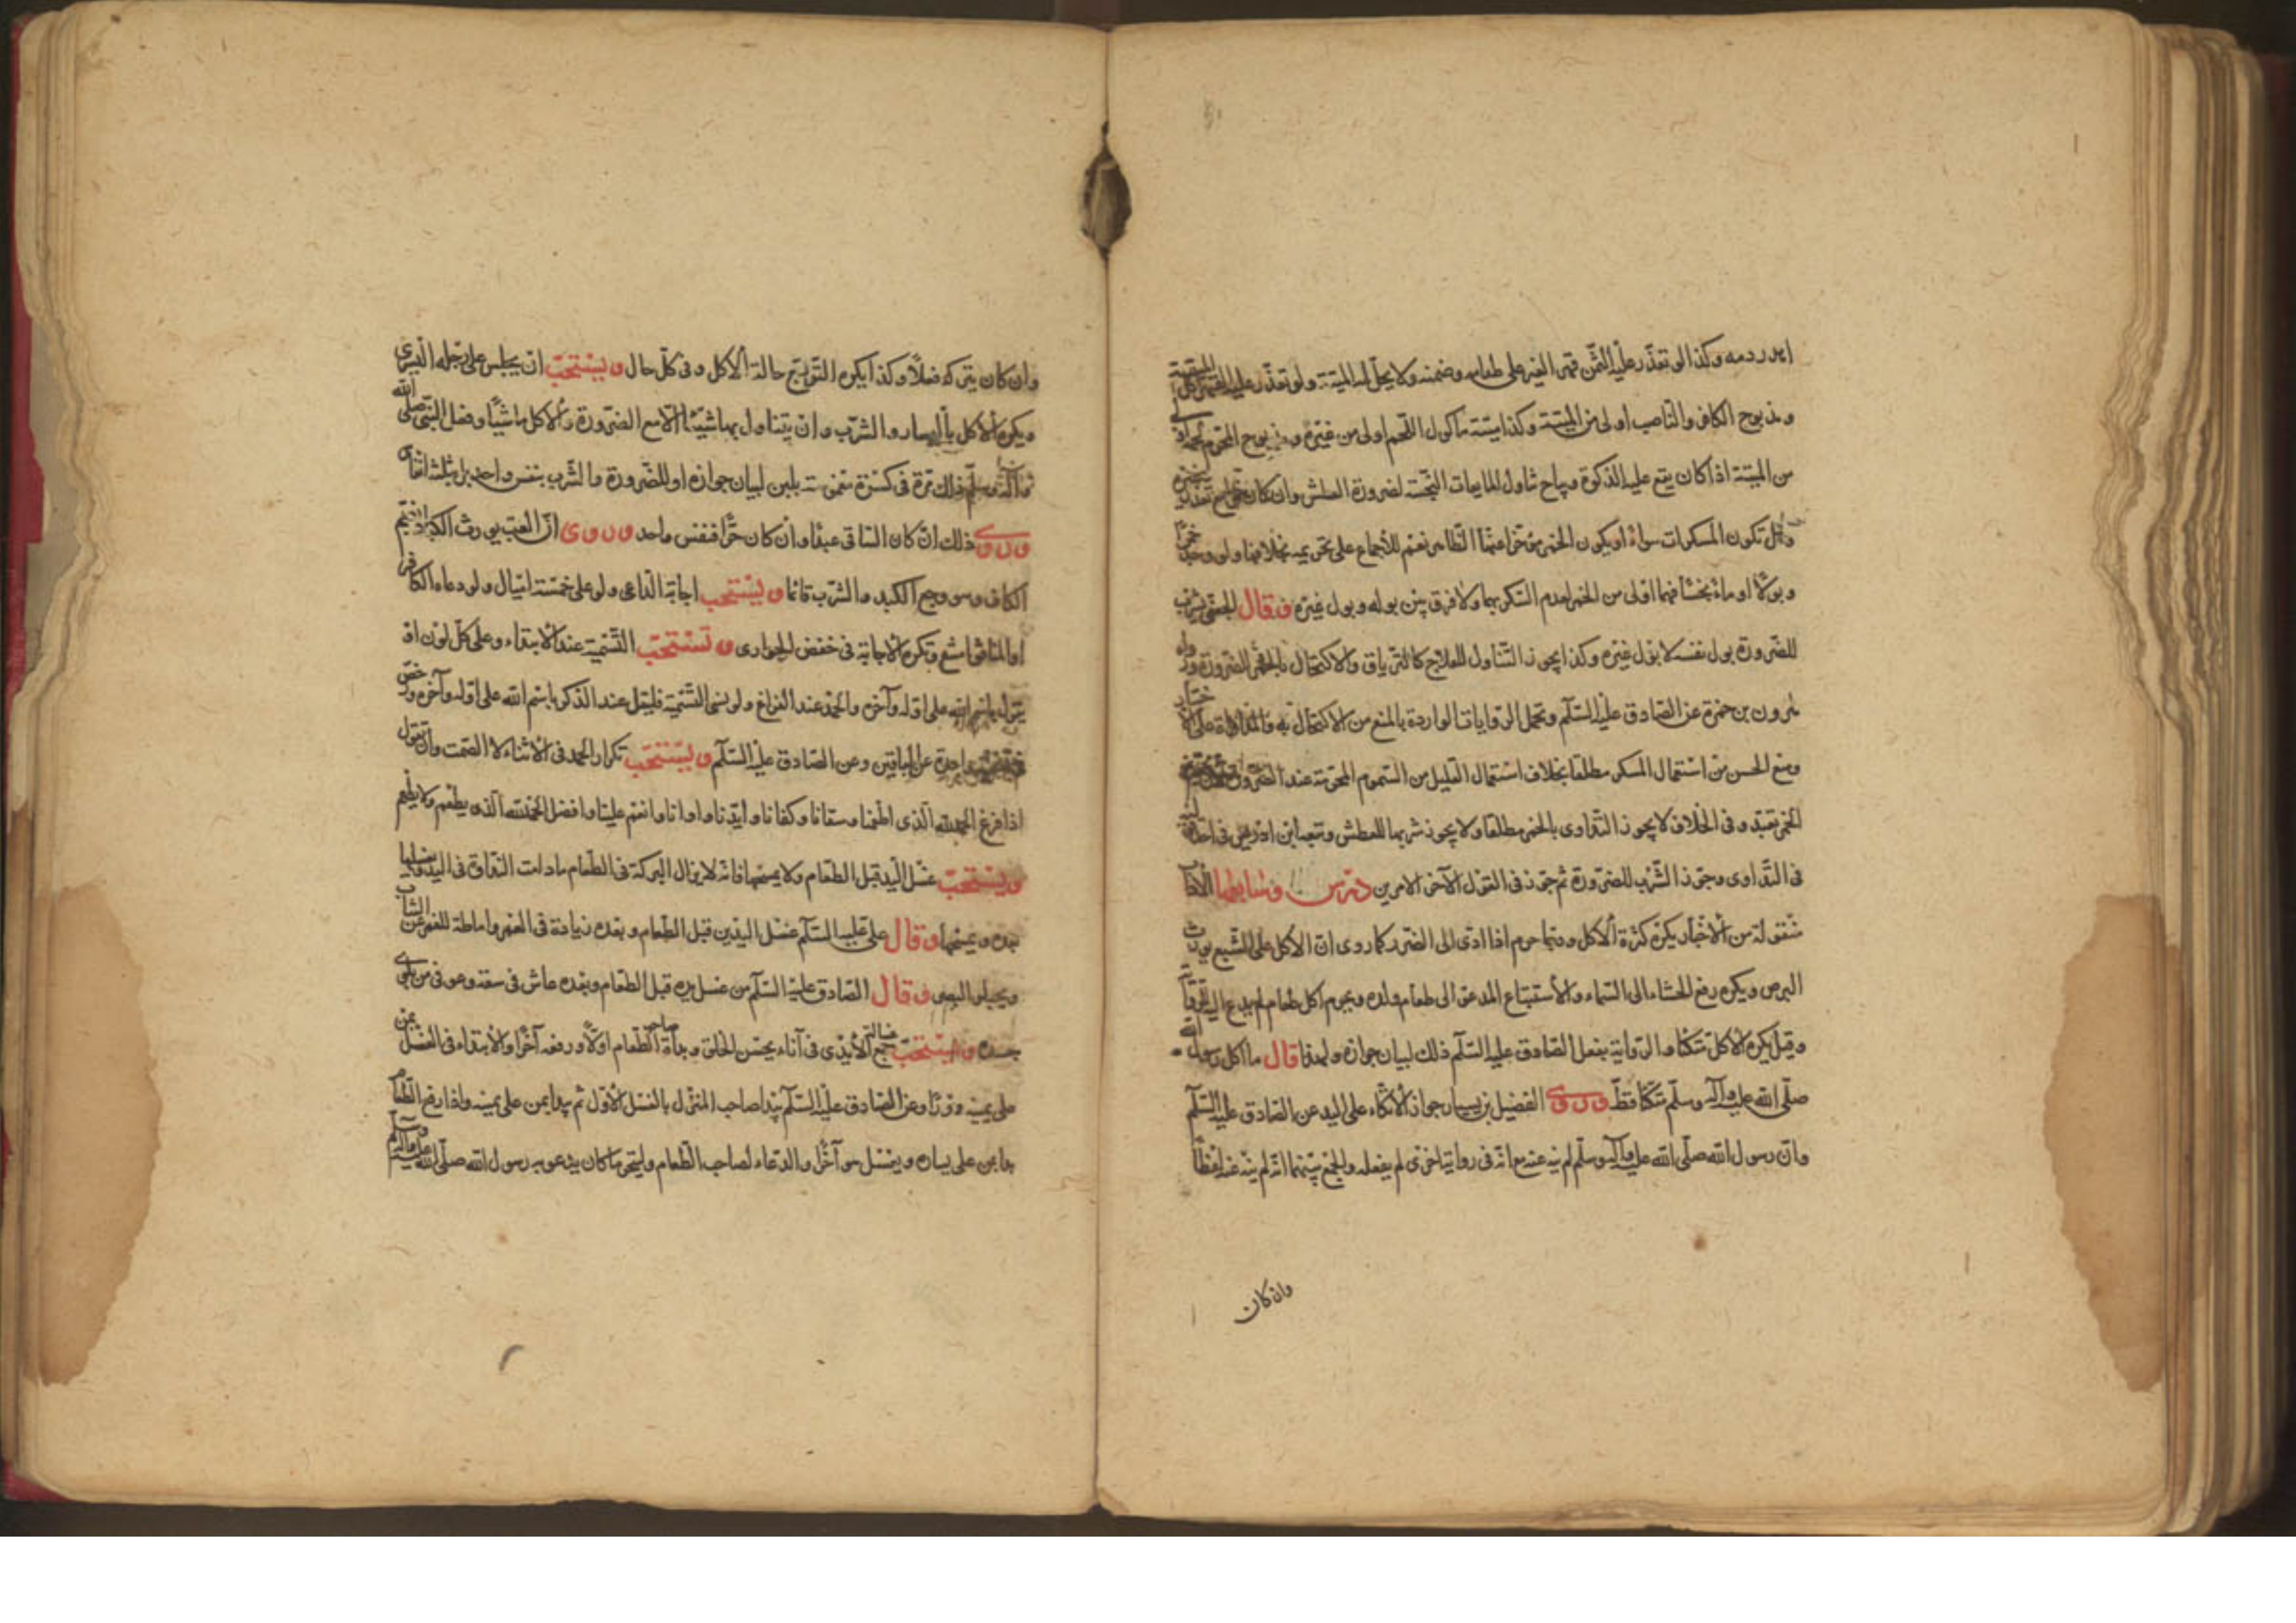 اهدر دمه وكذا لو تعذر عليه الثمن قهر الغير على طعامه وضمنه ولا يحل له الميتة ولو تعذر عليه القهر اكل الميتة
ومذبوح الكافر والناصب اولى من الميتة وكذا ميتة مأكول اللحم اولى من غيره ومذبوح المحرم لحمه اولى
من الميتة اذا كان يقع عليه الذكوة ويباح تناول المايعات النجسة لضرورة العطش وان كان خمرا مع تعذر غيره
وهل تكون المسكرات سواء او يكون الخمر مؤخرا عنها الظاهر نعم للأجماع على تحريمه بخلافها ولو وجد خمرا
وبولا او ماء نجسا فهما اولى من الخمر لعدم السكر بهما ولا فرق بين بوله وبول غيره وقال الجعفى يشرب
للضرورة بول نفسه لا بول غيره وكذا يجوز التناول للعلاج كالترياق والاكتحال بالخمر للضرورة رواه
هرون بن حمزة عن الصادق عليه السلم وتحمل الروايات الواردة بالمنع من الاكتحال به والمداواة على الاختيار
ومنع الحسن من استعمال المسكر مطلقا بخلاف استعمال القليل من السموم المحرمة عند الضرورة
الخمر تعبد وفى الخلاف لا يجوز التداوى بالخمر مطلقا ولا يجوز شربها للعطش وتبعه ابن ادريس فى احد قوليه
فى التداوى وجوز الشرب للضرورة ثم جوز فى القول الآخر الامرين درس وسابعها الآداب
منقولة من الأخبار يكره كثرة الأكل وربما حرم اذا ادى الى الضرر كما روى ان الاكل على الشبع يورث
البرص ويكره رفع الجشاء الى السماء والأستتباع المدعو الى طعام ولده ويحرم اكل طعام لم يدع اليه للرواية
وقيل يكره الأكل متكئا والرواية بفعل الصادق عليه السلم ذلك لبيان جوازه ولهذا قال ما اكل رسول الله
صلى الله عليه وآله وسلم متكئا قط وروى الفضيل بن يسار جواز الأتكاء على اليد عن الصادق عليه السلم
وان رسول الله صلى الله عليه وآله وسلم لم ينه عنه مع انه فى رواية اخرى لم يفعله والجمع بينهما انه لم ينه عنه لفظا
وان كان
وان كان يتركه فعلا وكذا يكره التربع حالة الأكل وفى كل حال ويستحب ان يجلس على رجله اليسرى
ويكره الأكل باليسار والشرب وان يتناول بها شيئا الا مع الضرورة والأكل ماشيا وفعل النبى صلى الله
عليه وآله وسلم ذلك مرة فى كسرة مغموسة بلبن لبيان جوازه او للضرورة والشرب بنفس واحد بل بثلثة انفاس
وروى ذلك ان كان الساقى عبدا وان كان حرا فبنفس واحد وروى ان العب يورث الكباد بضم
الكاف وهو وجع الكبد والشرب قائما ويستحب اجابة الداعى ولو على خمسة اميال ولو دعاه الكافر
او المنافق امتنع وتكره الأجابة فى خفض الجوارى وتستحب التسمية عند الأبتداء وعلى كل لون او
يقول بسم الله على اوله وآخره والحمد عند الفراغ ولو نسى التسمية فليقل عند الذكر باسم الله على اوله وآخره ورخص
فى تسمية واحدة عن الباقين وعن الصادق عليه السلم ويستحب تكرار الحمد فى الأثناء لا الصمت وان تقول
اذا فرغ الحمد لله الذى اطعمنا وسقانا وكفانا وأيدنا وآوانا وانعم علينا وافضل الحمد لله الذى يطعم ولا يطعم
ويستحب غسل اليد قبل الطعام ولا يمسحها فانه لا يزال البركة فى الطعام ما دامت النداوة فى اليد ويغسلها
بعده ويمسحها وقال على عليه السلم غسل اليدين قبل الطعام وبعده زيادة فى العمر واماطة للغمر عن الثياب
ويجلو البصر وقال الصادق عليه السلم من غسل يده قبل الطعام وبعده عاش فى سعة وعوفى من بلوى
جسده ويستحب جمع غسالة الأيدى فى اناء يحسن الخلق وبدأة صاحب الطعام اولا ورفعه آخرا والأبتداء فى الغسل بمن
على يمينه ودورا وعن الصادق عليه السلم يبدا صاحب المنزل بالغسل الأول ثم يبدا بمن على يمينه واذا رفع الطعام
بدا بمن على يساره ويغسل هو آخرا والدعاء لصاحب الطعام وليتحر ما كان يدعو به رسول الله صلى الله عليه وآله وسلم